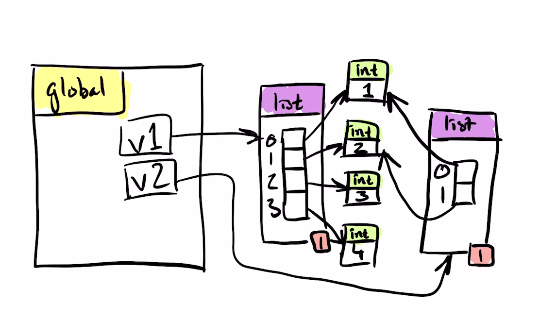 global
v1
v2
list
0
1
2
3
1
int
1
int
2
int
3
int
4
list
0
1
1